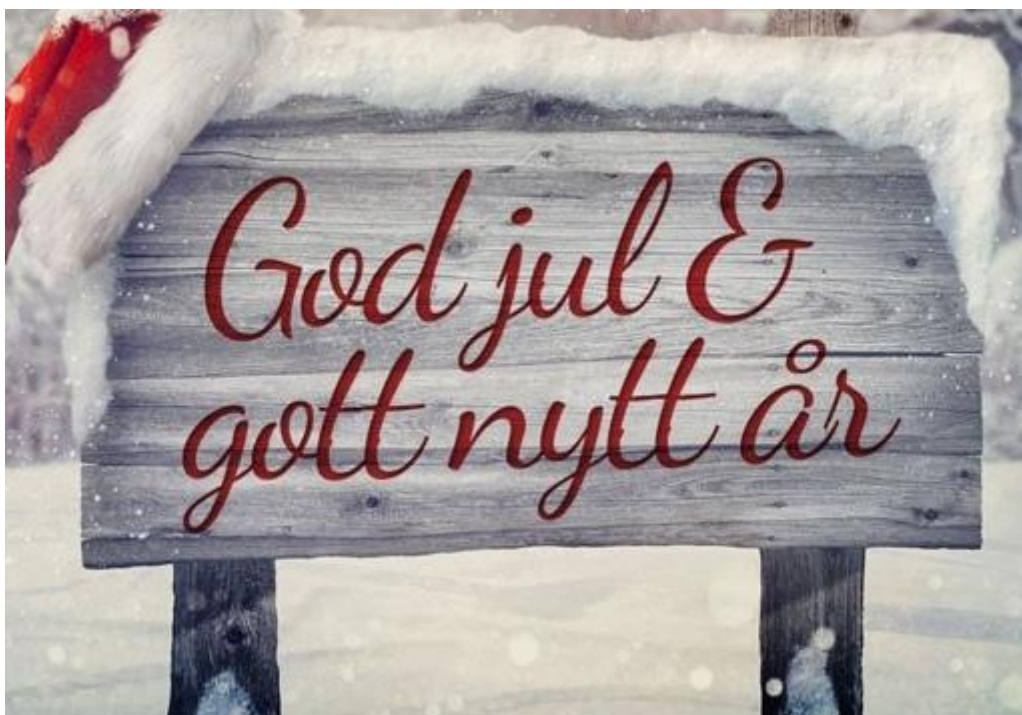 God jul &
gott nytt år